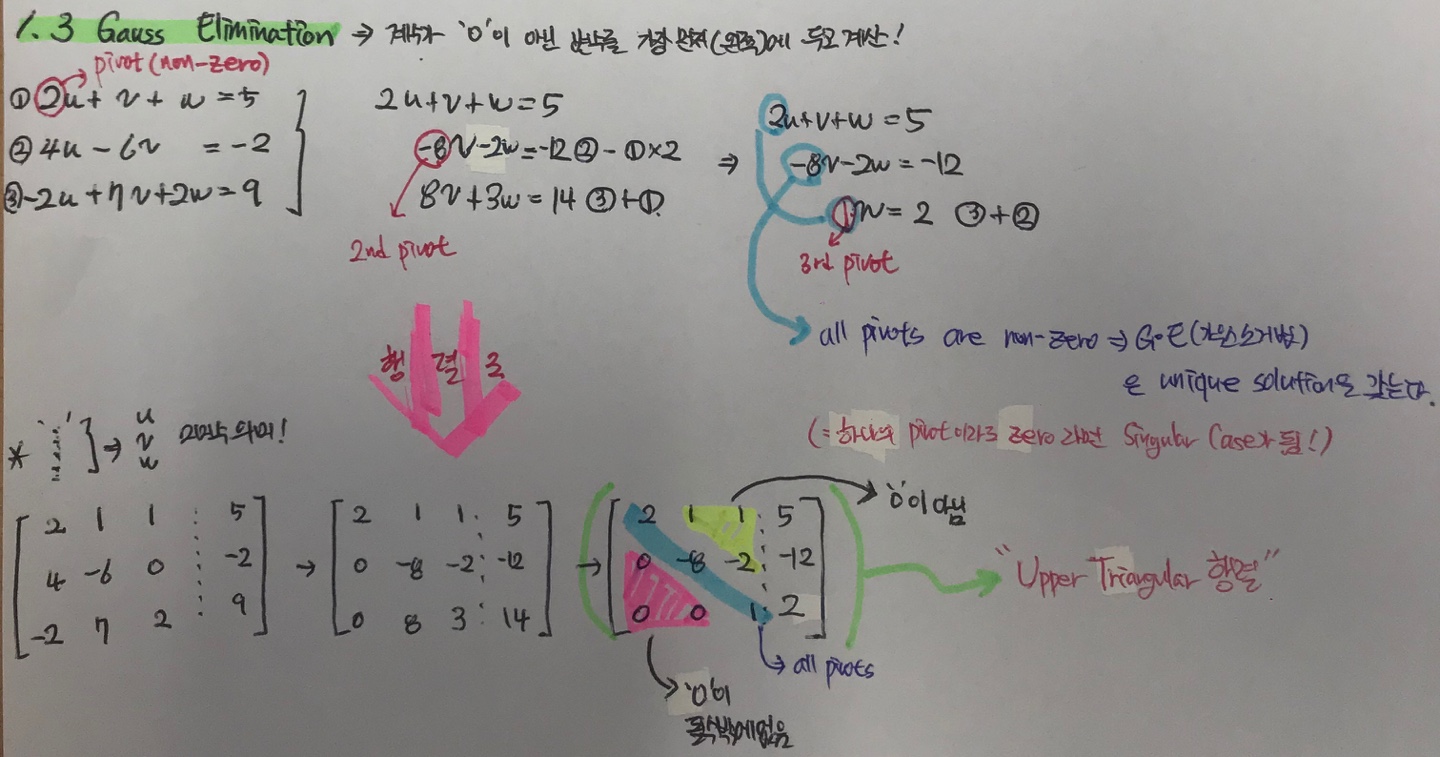 1.3 Gauss Elimination ⇒ 계수가 '0'이 아닌 를 가장 먼저(왼쪽)에 두고 계산!
pivot(non-zero)
① 2u + v + w = 5
② 4u - 6v = -2
③ -2u + 7v + 2w = 9
2u+v+w=5
-8v-2w=-12 ②-①×2
8v+3w=14 ③+①
2nd pivot
⇒
2u+v+w=5
-8v-2w=-12
1w=2 ③+②
3rd pivot
all pivots are non-zero ⇒ G·E(가우스소거법)
은 unique solution을 갖는다.
(= 하나의 pivot이라도 zero 라면 Singular Case가 됨!)
행 렬 로
* ] → u v w
[2 1 1 : 5
4 -6 0 : -2
-2 7 2 : 9]
→ [2 1 1 : 5
0 -8 -2 : -12
0 8 3 : 14]
→ [2 1 1 : 5
0 -8 -2 : -12
0 0 1 : 2]
'0'이 아님
"Upper Triangular 행렬"
all pivots
'0'이
될수밖에없음